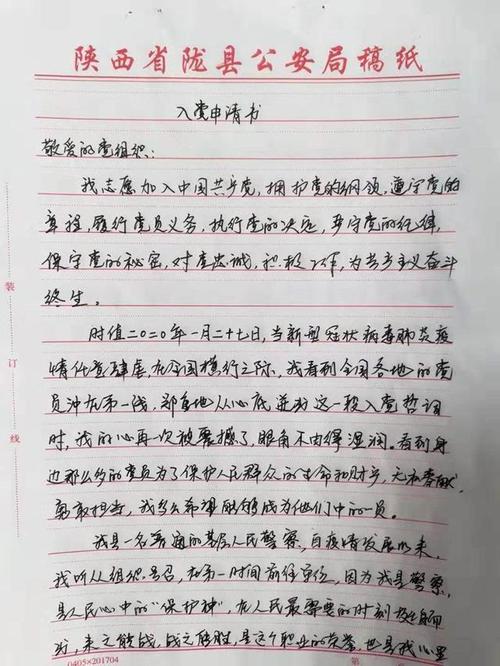 陕西省陇县公安局稿纸
入党申请书
敬爱的党组织：
我志愿加入中国共产党，拥护党的纲领，遵守党的
章程，履行党员义务，执行党的决定，严守党的纪律，
保守党的秘密，对党忠诚，积极工作，为共产主义奋斗
终生。
时值二〇二〇年一月二十七日，当新型冠状病毒肺炎疫
情在全国横行之际，我看到全国各地的党
员冲在第一线，从心底这一段入党誓词
时，我的心再次被震撼了，眼角不由得湿润。看到身
边那么多的党员为了保护人民群众的生命和财产，无私奉献，
勇敢担当，我多么希望能够成为他们中的一员。
我是一名普通的基层人民警察，自疫情发展以来，
我听从组织号召，在第一时间前往单位，因为我是警察，
是人民心中的“保护神”，在人民最需要的时刻
来之能战，战之能胜，是这个职业的荣誉，也是我心里
0405×201704
装
订
线